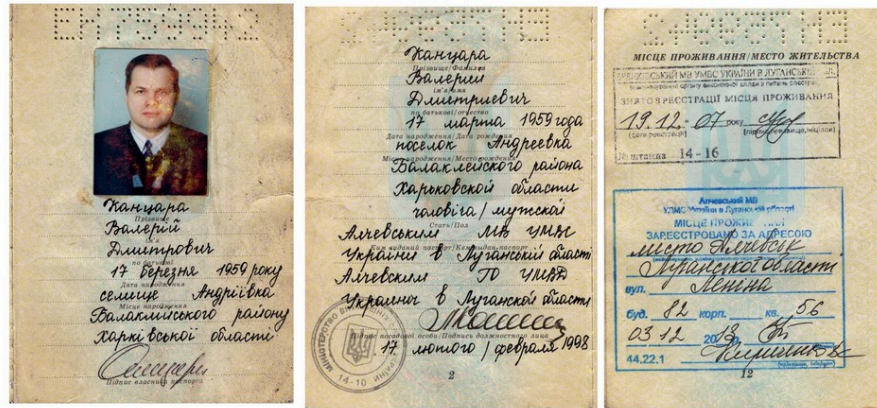 Канцара
Прізвище
Валерій
Ім'я
Дмитрович
по батькові
17 березня 1959 року
Дата народження
селище Андріївка
Місце народження
Балаклійського району
Харківської області
Підпис власника паспорта
Канцара
Прізвище/Фамилия
Валерий
ім'я/имя
Дмитриевич
по батькові/отчество
17 марта 1959 года
Дата народження/Дата рождения
поселок Андреевка
Місце народження/Место рождения
Балаклейского района
Харьковской области
чоловіча/мужской
Стать/Пол
Алчевським МВ УМВС
Ким виданий паспорт/Кем выдан паспорт
України в Луганській області
Алчевским ГО УМВД
Украины в Луганской области
Підпис посадової особи/Подпись должностного лица
17 лютого/февраля 1998
МІНІСТЕРСТВО ВНУТРІШНІХ УКРАЇНИ
14-10
2
МІСЦЕ ПРОЖИВАННЯ/МЕСТО ЖИТЕЛЬСТВА
МВ УМВС УКРАЇНИ В ЛУГАНСЬКІЙ
ЗНЯТО З РЕЄСТРАЦІЇ МІСЦЯ ПРОЖИВАННЯ
19.12. 07 року
(дата реєстрації)
№ штампа 14-16
Алчевський МВ
УДМС України в Луганській області
МІСЦЕ ПРОЖИВАННЯ
ЗАРЕЄСТРОВАНО ЗА АДРЕСОЮ
місто Алчевськ
Луганської області
вул. Леніна
буд. 82 корп. кв. 56
03 12 2013
44.22.1
12